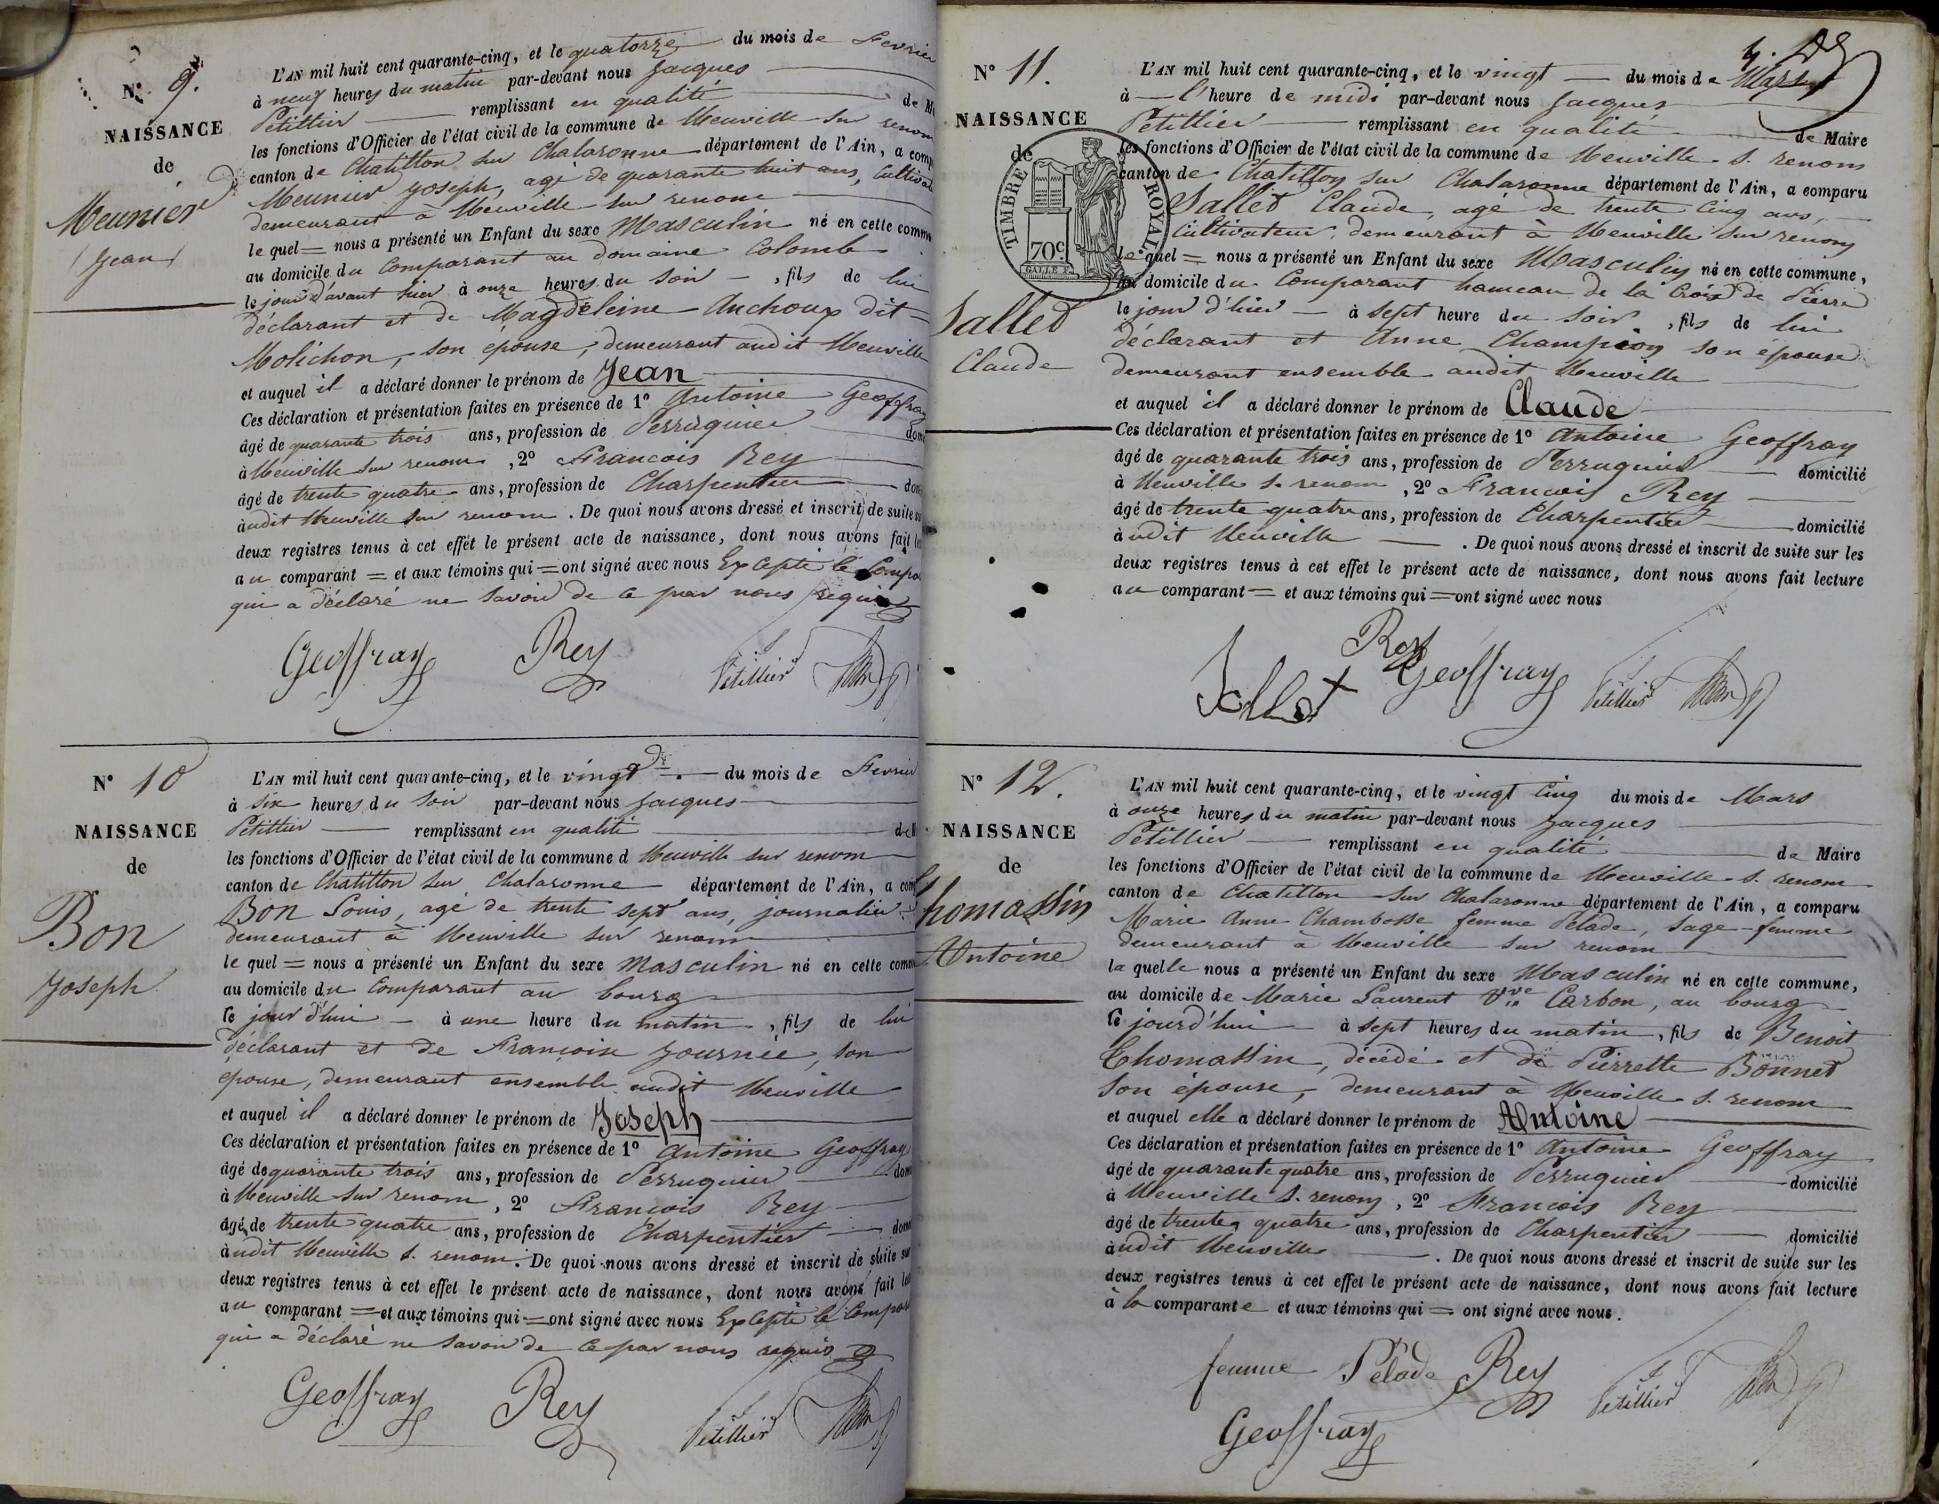 N° 9.
NAISSANCE
de
Meunier
Jean
L'AN mil huit cent quarante-cinq, et le quatorze du mois de Fevrier
à neuf heures du matin par-devant nous Jacques
Petillier remplissant en qualité de
les fonctions d'Officier de l'état civil de la commune de Neuville sur renom
canton de Chatillon sur Chalaronne département de l'Ain, a comp
Meunier Joseph, age de quarante huit ans, Cultiva
demeurant à Neuville sur renom
le quel = nous a présenté un Enfant du sexe Masculin né en cette comm
au domicile du Comparant au domaine Colomb
le jour d'avant hier à onze heures du soir, fils de lui
déclarant et de Magdeleine Anchoux dit =
Molichon, son épouse, demeurant audit Neuville
et auquel il a déclaré donner le prénom de Jean
Ces déclaration et présentation faites en présence de 1° Antoine Geoffray
âgé de quarante trois ans, profession de Perruquier dom
à Neuville sur renom, 2° Francois Rey
âgé de trente quatre ans, profession de Charpentier dom
à udit Neuville sur renom. De quoi nous avons dressé et inscrit de suite su
deux registres tenus à cet effet le présent acte de naissance, dont nous avons fait le
au comparant = et aux témoins qui = ont signé avec nous Excepté le Compa
qui a déclaré ne savoir de ce par nous requis
Geoffray Rey Petillier
N° 10
NAISSANCE
de
Bon
Joseph
L'AN mil huit cent quarante-cinq, et le vingt du mois de Fevrier
à six heures du soir par-devant nous Jacques
Petillier remplissant en qualité de M
les fonctions d'Officier de l'état civil de la commune d Neuville sur renom
canton de Chatillon sur Chalaronne département de l'Ain, a com
Bon Louis, age de trente sept ans, journalier
demeurant à Neuville sur renom
le quel = nous a présenté un Enfant du sexe Masculin né en cette comm
au domicile du Comparant au bourg
le jour d'hui à une heure du matin, fils de lui
déclarant et de Francoise Journée, son
épouse, demeurant ensemble audit Neuville
et auquel il a déclaré donner le prénom de Joseph
Ces déclaration et présentation faites en présence de 1° Antoine Geoffray
âgé de quarante trois ans, profession de Perruquier dom
à Neuville sur renom, 2° Francois Rey
âgé de trente quatre ans, profession de Charpentier dom
à udit Neuville s. renom. De quoi nous avons dressé et inscrit de suite sur
deux registres tenus à cet effet le présent acte de naissance, dont nous avons fait le
au comparant = et aux témoins qui = ont signé avec nous Excepté le Compar
qui a déclaré ne savoir de ce par nous requis
Geoffray Rey Petillier
N° 11.
NAISSANCE
de
TIMBRE ROYAL
70c
Sallet
Claude
L'AN mil huit cent quarante-cinq, et le vingt du mois de Mars
à l'heure de midi par-devant nous Jacques
Petillier remplissant en qualité de Maire
les fonctions d'Officier de l'état civil de la commune de Neuville s. renom
canton de Chatillon sur Chalaronne département de l'Ain, a comparu
Sallet Claude, agé de trente cinq ans,
Cultivateur, demeurant à Neuville sur renom
le quel = nous a présenté un Enfant du sexe Masculin né en cette commune,
au domicile du Comparant hameau de la Croix de Pierre
le jour d'hier à sept heure du soir, fils de lui
déclarant et Anne Champion son épouse
demeurant ensemble audit Neuville
et auquel il a déclaré donner le prénom de Claude
Ces déclaration et présentation faites en présence de 1° Antoine Geoffray
âgé de quarante trois ans, profession de Perruquier domicilié
à Neuville s. renom, 2° Francois Rey
âgé de trente quatre ans, profession de Charpentier domicilié
à udit Neuville. De quoi nous avons dressé et inscrit de suite sur les
deux registres tenus à cet effet le présent acte de naissance, dont nous avons fait lecture
au comparant = et aux témoins qui = ont signé avec nous
Sallet Rey Geoffray Petillier
N° 12.
NAISSANCE
de
Thomassin
Antoine
L'AN mil huit cent quarante-cinq, et le vingt cinq du mois de Mars
à onze heures du matin par-devant nous Jacques
Petillier remplissant en qualité de Maire
les fonctions d'Officier de l'état civil de la commune de Neuville s. renom
canton de Chatillon sur Chalaronne département de l'Ain, a comparu
Marie Anne Chambosse femme Pelade, sage-femme
demeurant à Neuville sur renom
la quelle nous a présenté un Enfant du sexe Masculin né en cette commune,
au domicile de Marie Laurent Vve Carbon, au bourg
le jourd'hui à sept heures du matin, fils de Benoit
Thomassin, décédé et de Pierrette Bonnet
son épouse, demeurant à Neuville s. renom
et auquel elle a déclaré donner le prénom de Antoine
Ces déclaration et présentation faites en présence de 1° Antoine Geoffray
âgé de quarante quatre ans, profession de Perruquier domicilié
à Neuville s. renom, 2° Francois Rey
âgé de trente quatre ans, profession de Charpentier domicilié
à udit Neuville. De quoi nous avons dressé et inscrit de suite sur les
deux registres tenus à cet effet le présent acte de naissance, dont nous avons fait lecture
à la comparante et aux témoins qui = ont signé avec nous.
femme Pélade Rey Petillier
Geoffray